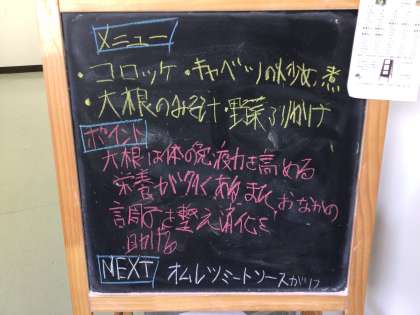 メニュー
・コロッケ・キャベツの炒め煮
・大根のみそ汁・野菜ふりかけ
ポイント
大根は体の免疫力を高める
栄養が多くあります。おなかの
調子を整え消化を
助ける
NEXT オムレツミートソースがけ